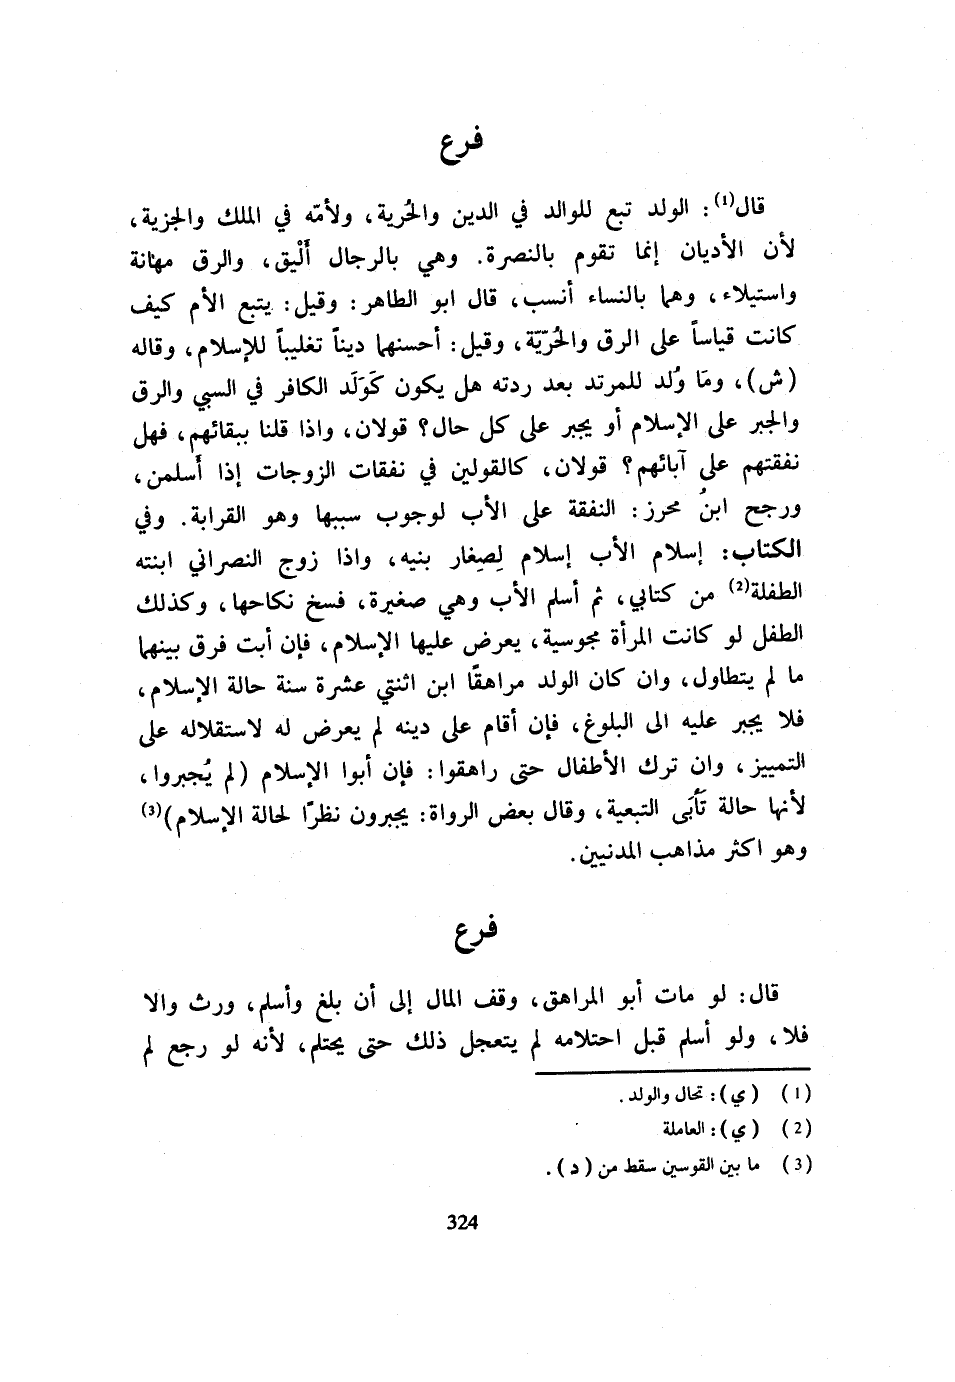 فرع
قال(1): الولد تبع للوالد في الدين والحُرية، ولأمّه في الملك والجزية،
لأن الأديان إنما تقوم بالنصرة. وهي بالرجال أَلْيق، والرق مهانة
واستيلاء، وهما بالنساء أنسب، قال ابو الطاهر: وقيل: يتبع الأم كيف
كانت قياساً على الرق والحُرّيّة، وقيل: أحسنهما ديناً تغليباً للإسلام، وقاله
(ش)، ومَا وُلد للمرتد بعد ردته هل يكون كَوَلَد الكافر في السبي والرق
والجبر على الإسلام أو يجبر على كل حال؟ قولان، واذا قلنا ببقائهم، فهل
نفقتهم على آبائهم؟ قولان، كالقولين في نفقات الزوجات إذا أَسلمن،
ورجح ابنُ محرز: النفقة على الأب لوجوب سببها وهو القرابة. وفي
الكتاب: إسلام الأب إسلام لِصِغار بنيه، واذا زوج النصراني ابنته
الطفلة(2) من كتابي، ثم أسلم الأب وهي صغيرة، فسخ نكاحها، وكذلك
الطفل لو كانت المرأة مجوسية، يعرض عليها الإسلام، فإن أبت فرق بينهما
ما لم يتطاول، وان كان الولد مراهقًا ابن اثنتي عشرة سنة حالة الإسلام،
فلا يجبر عليه الى البلوغ، فإن أقام على دينه لم يعرض له لاستقلاله على
التمييز، وان ترك الأطفال حتى راهقوا: فإن أبوا الإسلام (لم يُجبروا،
لأنها حالة تَأْبَى التبعية، وقال بعض الرواة: يجبرون نظرًا لحالة الإسلام)(3)
وهو اكثر مذاهب المدنيين.
فرع
قال: لو مات أبو المراهق، وقف المال إلى أن بلغ وأسلم، ورث والا
فلا، ولو أسلم قبل احتلامه لم يتعجل ذلك حتى يحتلم، لأنه لو رجع لم
(1) (ي): تحال والولد.
(2) (ي): العاملة
(3) ما بين القوسين سقط من (د).
324